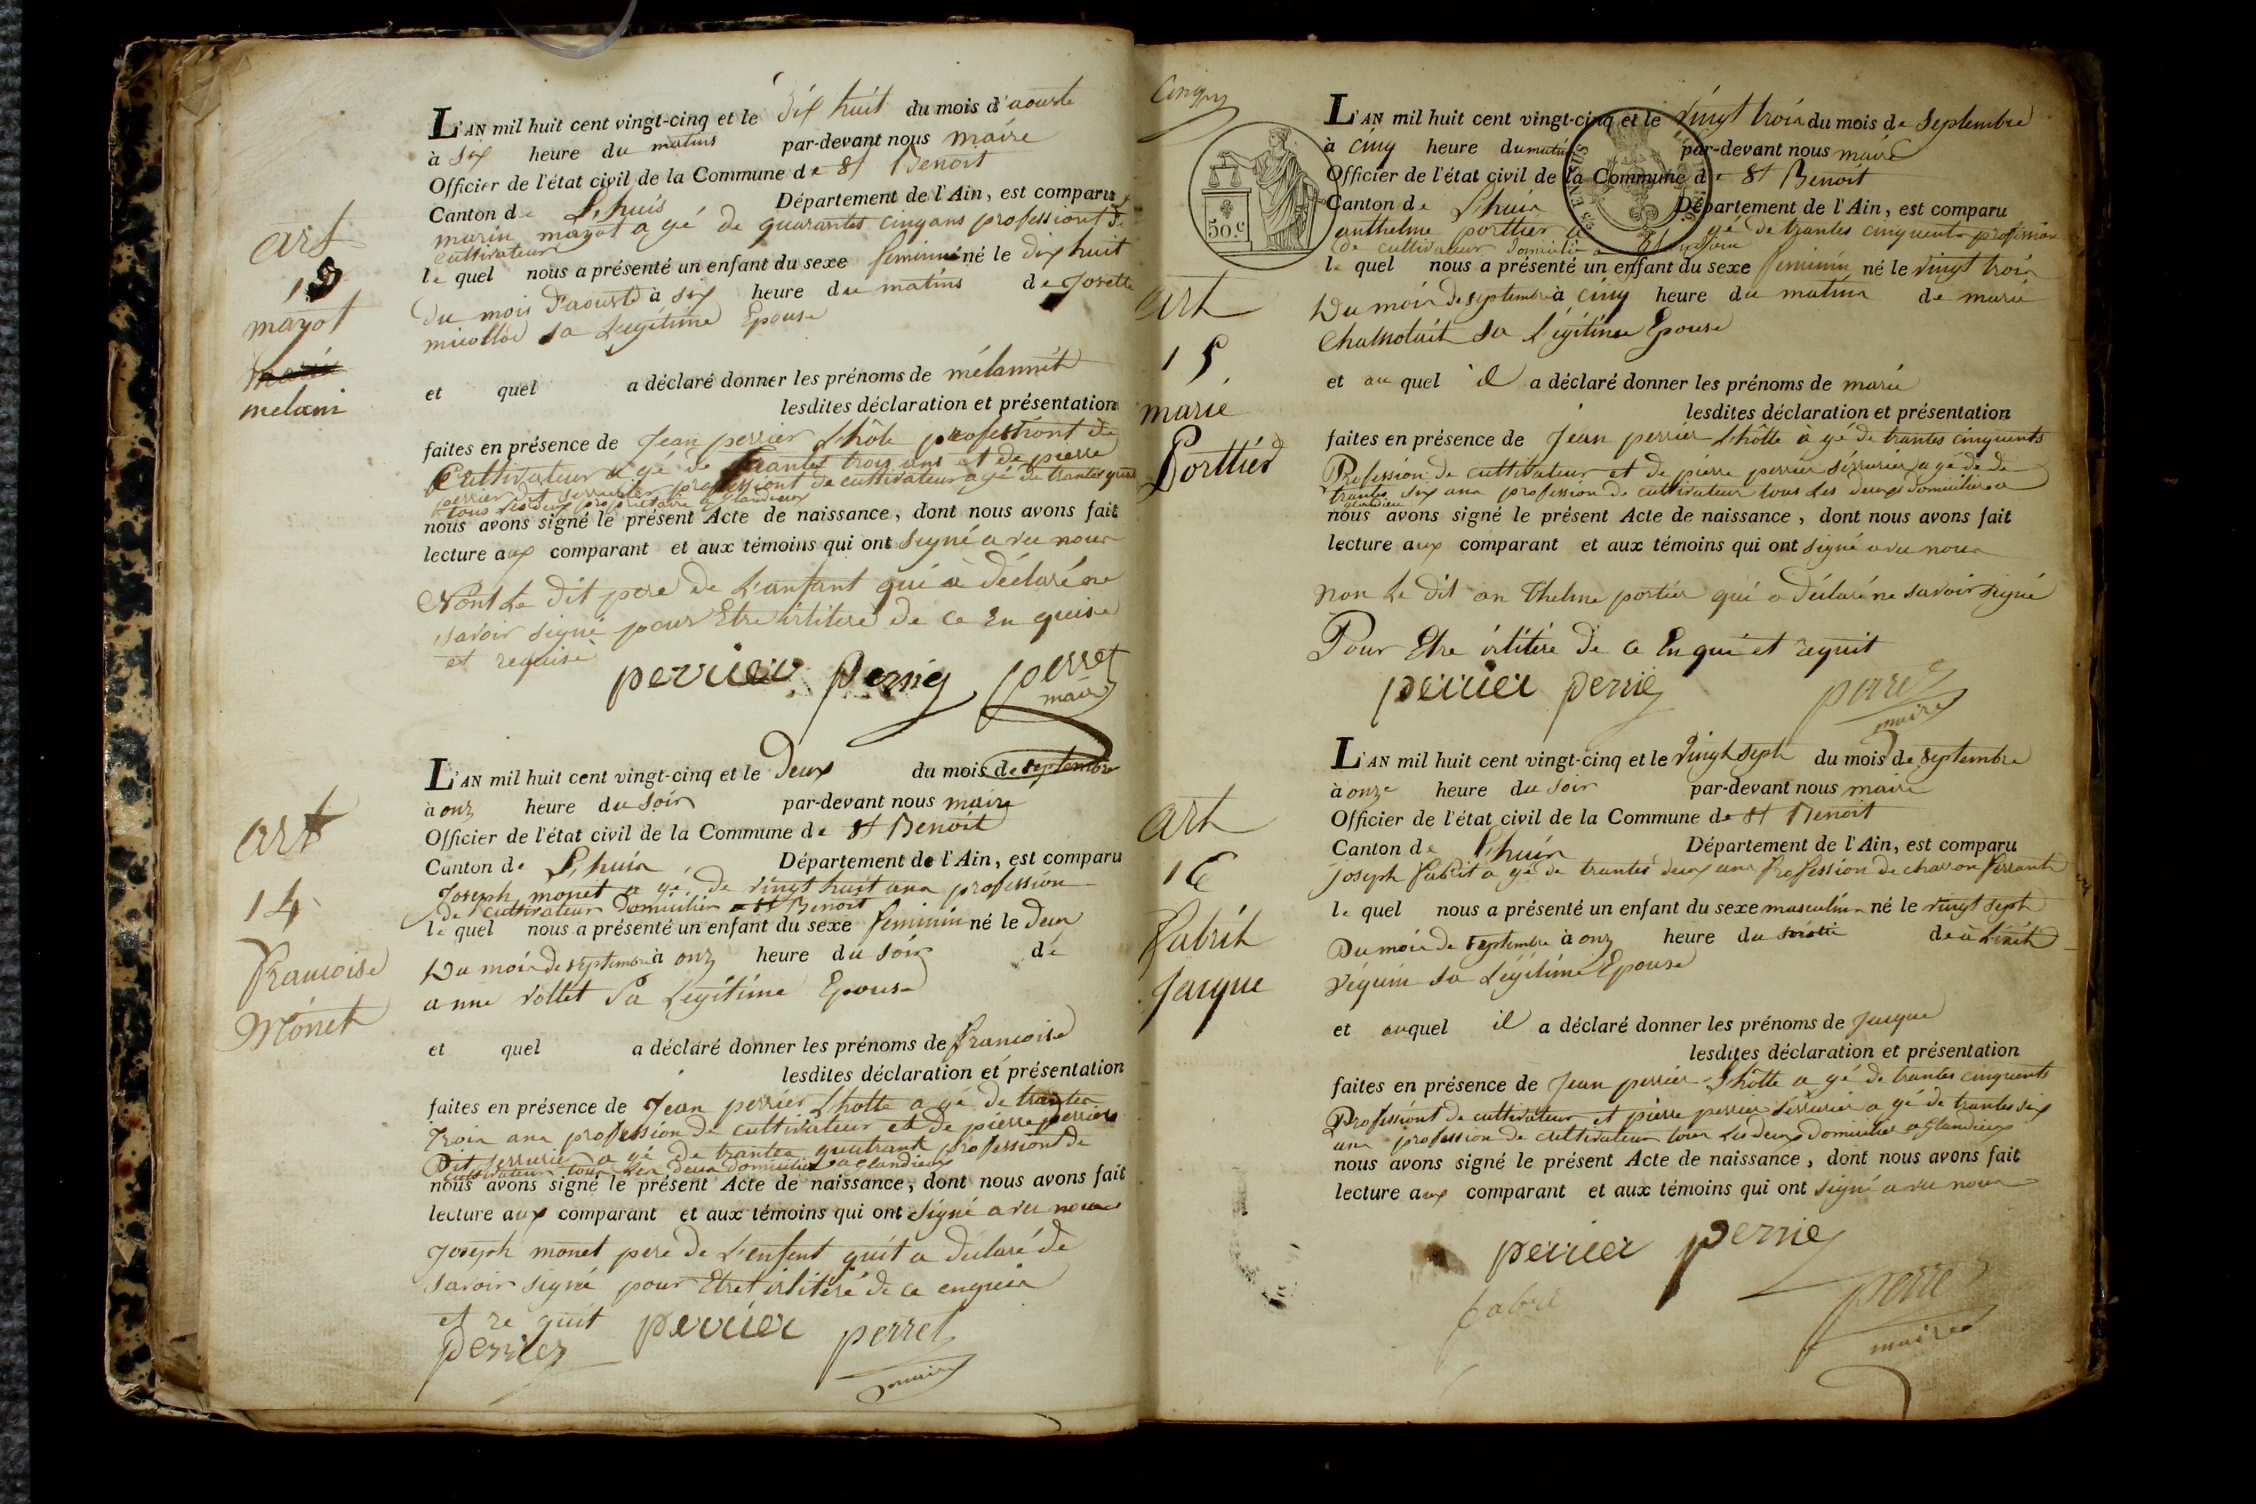 art
13
mayot
melani
L'AN mil huit cent vingt-cinq et le dix huit du mois d'aouste
à six heure du matins par-devant nous maire
Officier de l'état civil de la Commune de St Benoit
Canton de L'huis Département de l'Ain, est comparu
marin mayot agé de quarantes cinq ans professiont de
cultivateur
le quel nous a présenté un enfant du sexe feminin né le dix huit
du mois d'aouste à six heure du matins de Josette
sa Legitime Epouse
et quel a déclaré donner les prénoms de mélannit
lesdites déclaration et présentation
faites en présence de Jean perrier L'hôte professiont de
Cultivateur agé de trantes trois ans et de pierre
perrier dit serrurier professiont de cultivateur agé de trantes
tous les deux propriétaire a Glandieux
nous avons signé le présent Acte de naissance, dont nous avons fait
lecture aux comparant et aux témoins qui ont signé avec nous
Nont Le dit pere de L'anfant qui a déclaré ne
savoir signé pour Etre irlitéré de ce En quise
et requise
perrier perrier perret
maire
art
14
Francoise
Monet
L'AN mil huit cent vingt-cinq et le Deux du mois de septembre
à onz heure du soir par-devant nous maire
Officier de l'état civil de la Commune de St Benoit
Canton de L'huis Département de l'Ain, est comparu
Joseph monet agé de vingt huit ans profession
de cultivateur Domicilier a St Benoit
le quel nous a présenté un enfant du sexe feminin né le Deux
Du mois de septembre à onz heure du soir de
anne vollet Sa Legitime Epouse
et quel a déclaré donner les prénoms de Francoise
lesdites déclaration et présentation
faites en présence de Jean perrier L'hotte agé de trantes
trois ans profession de cultivateur et de pierre perrier
Dit serrurier agé de trantes quatrant professiont de
cultivateur tous Les deux Domicilié a Glandieux
nous avons signé le présent Acte de naissance, dont nous avons fait
lecture aux comparant et aux témoins qui ont signé avec nous
Joseph monet pere de L'enfent quit a déclaré de
savoir signé pour Etre irlitéré de ce enquis
et re quit
perrier perrier perret
maire
50.c
art
15
marie
Porttier
L'AN mil huit cent vingt-cinq et le vingt trois du mois de septembre
à cinq heure du matin par-devant nous maire
Officier de l'état civil de la Commune de St Benoit
Canton de L'huis Département de l'Ain, est comparu
anthelme porttier agé de trantes cinquents profession
de cultivateur domicilié a
le quel nous a présenté un enfant du sexe feminin né le vingt trois
Du mois de septembre à cinq heure du matin de marie
sa Légitime Epouse
et au quel il a déclaré donner les prénoms de marie
lesdites déclaration et présentation
faites en présence de Jean perrier L'hôtte àgé de trantes cinquents
Profession de cultivateur et de pierre perrier sérrurier agé de de
trantes six ans profession de cultivateur tous Les deux domicilier a
glandieu
nous avons signé le présent Acte de naissance, dont nous avons fait
lecture aux comparant et aux témoins qui ont signé avec nous
non Le dit an thelme portier qui a déclaré ne savoir signé
Pour Etre irlitéré de ce En qui et requit
perrier perrier perret
maire
art
16
Fabrit
Jacque
L'AN mil huit cent vingt-cinq et le vingt sept du mois de septembre
à onze heure du soir par-devant nous maire
Officier de l'état civil de la Commune de St Benoit
Canton de L'huis Département de l'Ain, est comparu
joseph fabrit agé de trantes deux ans Profession de charon Ferrant
le quel nous a présenté un enfant du sexe masculin né le vingt sept
Du mois de septembre à onz heure du de
sa Légitime Epouse
et auquel il a déclaré donner les prénoms de Jacque
lesdites déclaration et présentation
faites en présence de Jean perrier L'hôtte agé de trantes cinquents
Professiont de cultivateur et pierre perrier sérrurier agé de trantes six
ans profession de cultivateur tous Les deux Domicilier a Glandieux
nous avons signé le présent Acte de naissance, dont nous avons fait
lecture aux comparant et aux témoins qui ont signé avec nous
perrier perrier
fabri perret
maire